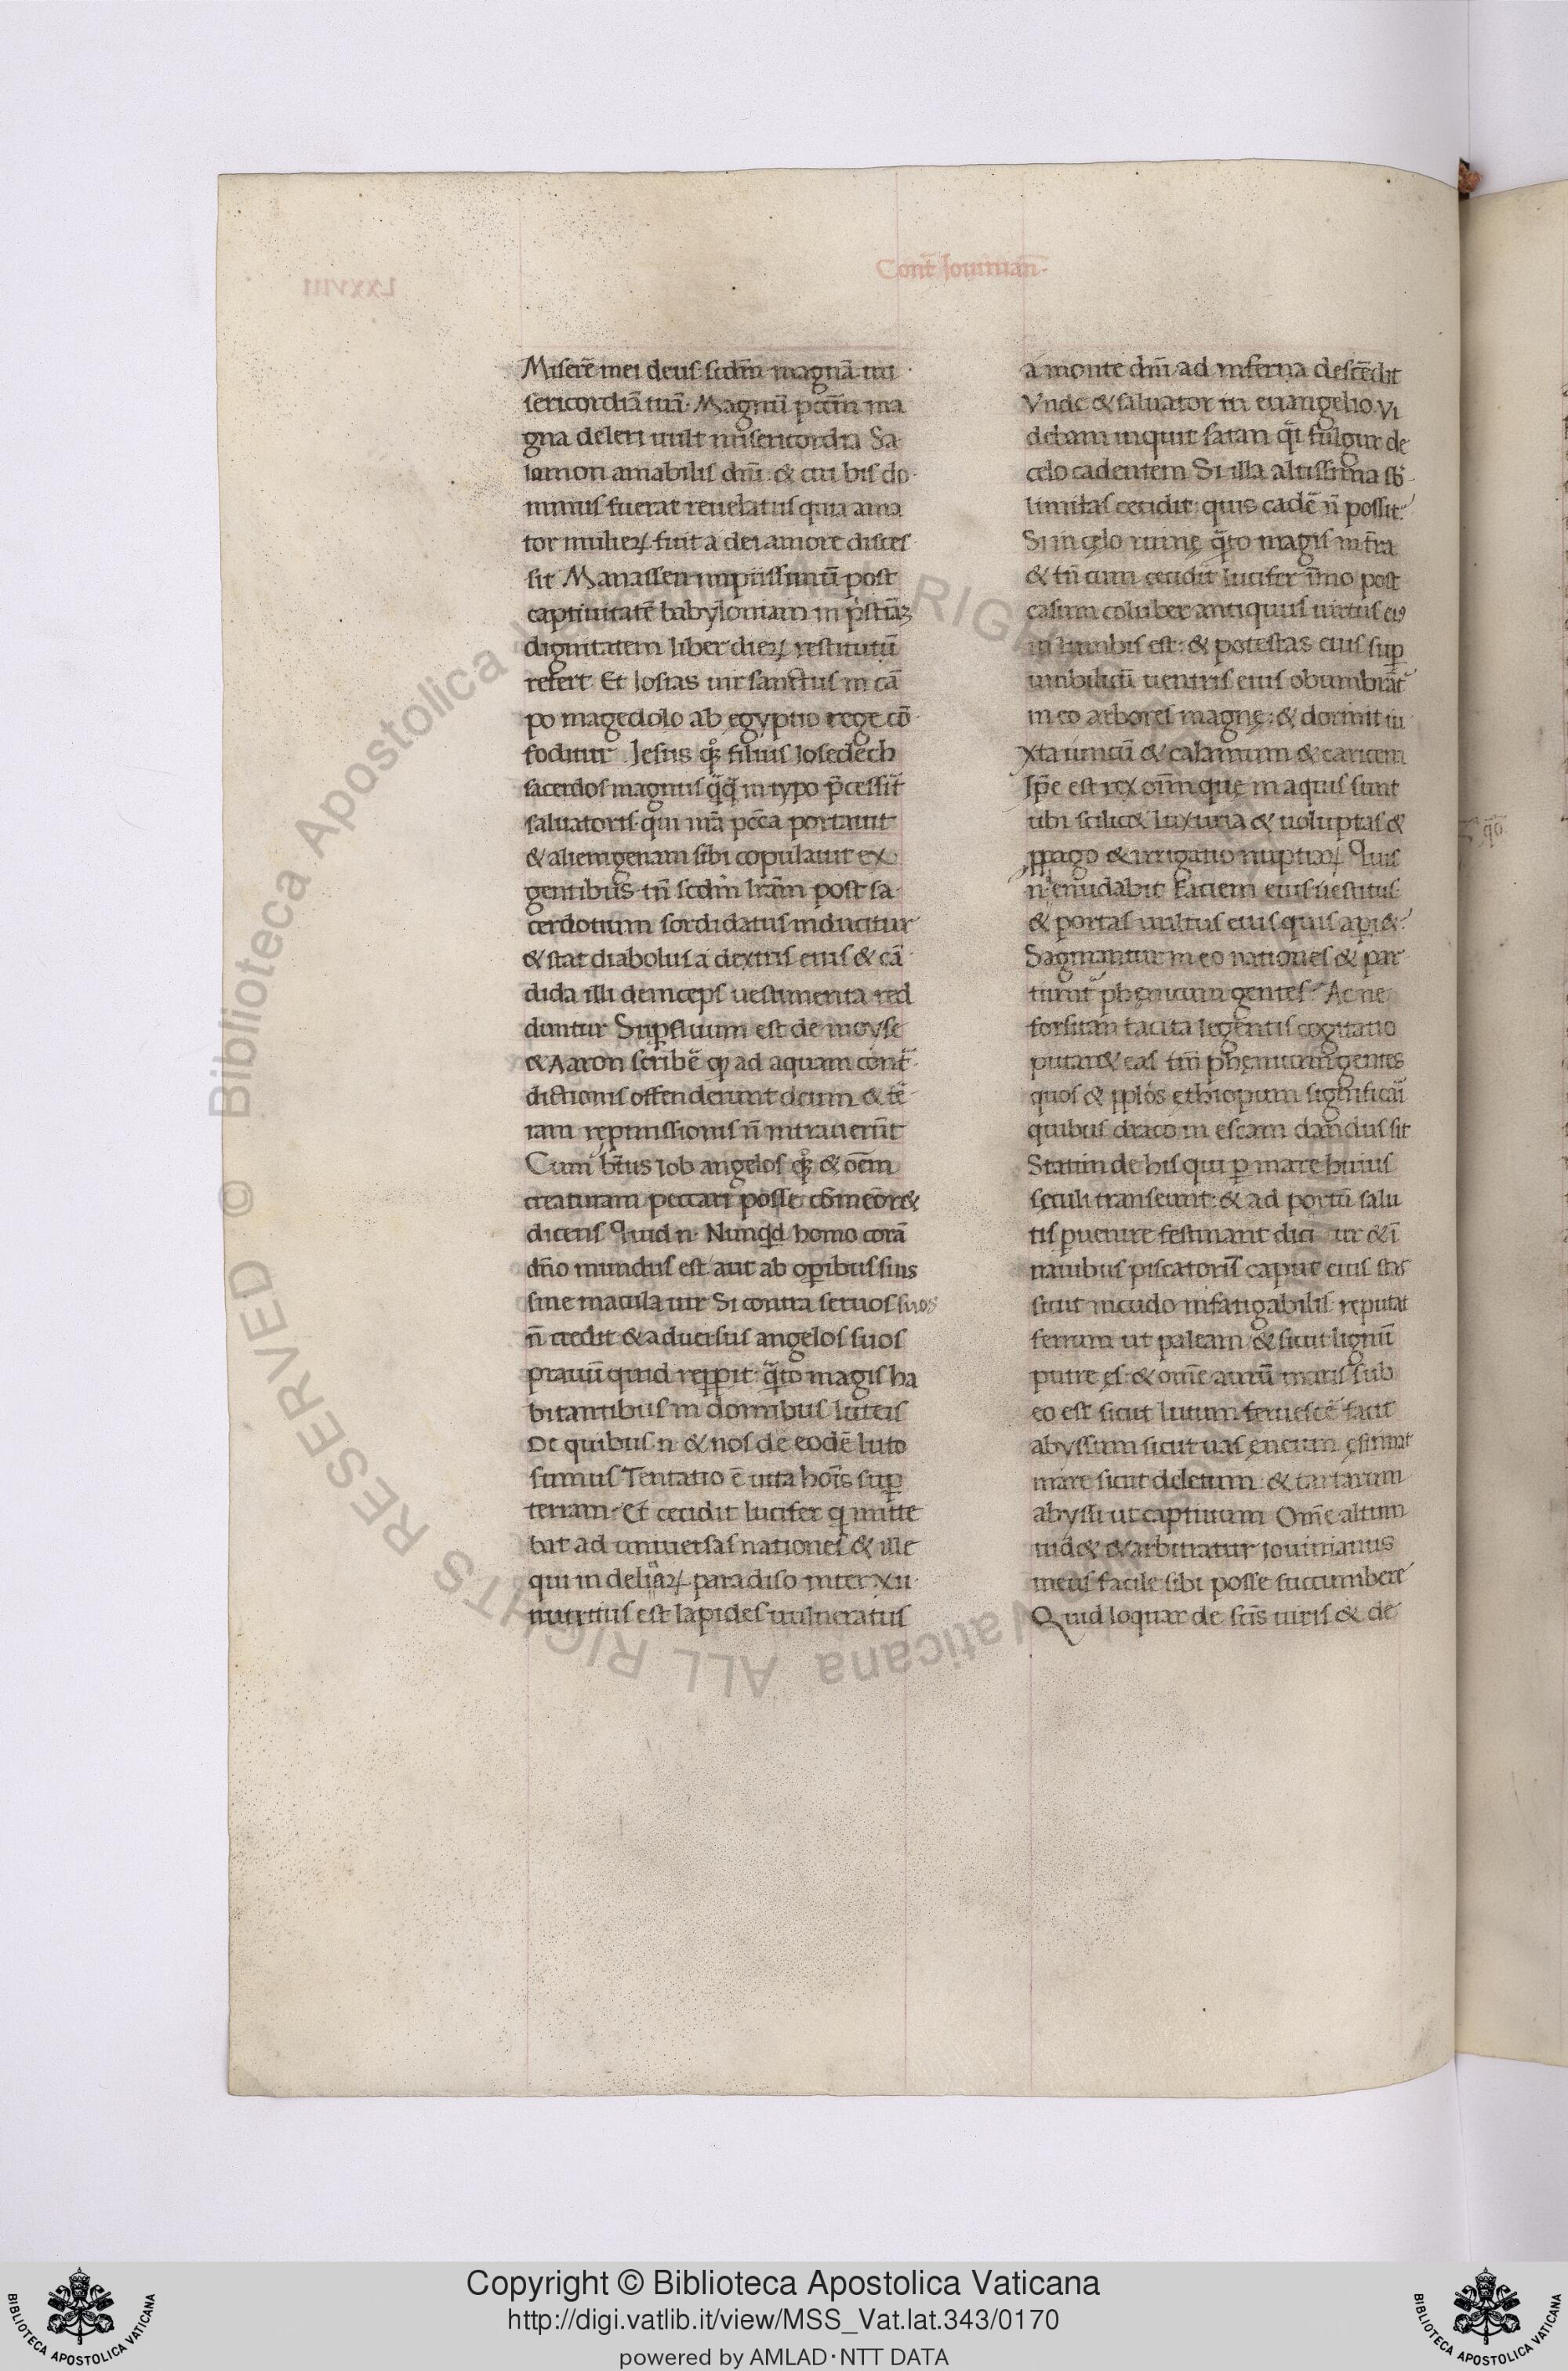 Cont̃ Iouinian̄.
Miserẽ mei deus scdm̃ magnã mi
sericordiã tuã. Magnũ pctm̃ ma
gna deleri uult misericordia Sa
lomon amabilis dñi. & cui bis do
minus fuerat reuelatus quia ama
tor mulieꝝ fuit a dei amore disces
sit Manassen impiissimũ post
captiuitatẽ babyloniam in pristinã
dignitatem liber dieꝝ restitutũ
refert. Et Iosias uir sanctus in cã
po magedolo ab ęgyptio rege cõ
foditur. Jesus qͦꝫ filius Iosedech
sacerdos magnus q̃q̃ in typo p̃cessit̃
saluatoris. qui nr̃a pctã portauit
& alienigenam sibi copulauit ex
gentibus. tñ scdm̃ lr̃am post sa
cerdotium sordidatus inducitur
& stat diabolus a dextris eius & cã
dida illi deinceps uestimenta red
duntur Suꝑfluum est de moyse
& Aaron scribẽ ꝙ ad aquam cont̃
dictionis offenderunt deum & tẽ
ram repmissionis ñ intrauerũt
Cum b̃tus iob angelos qͦꝫ & oẽm
creaturam peccari posse cõmemor&
dicens Quid n. Nunqͥd homo corã
dño mundus est aut ab oꝑibus suis
sine macula uir Si contra seruos suos
ñ credit & aduersus angelos suos
prauũ quid reꝑꝑit. q̃to magis ha
bitantibus in domibus luteis
De quibus n. & nos de eodẽ luto
sumus Tentatio ẽ uita hoĩs suꝑ
terram. Et cecidit lucifer q̃ mitte
bat ad uniuersas nationes & ille
qui in deliciaꝝ paradiso inter xii
nutritus est lapides uulneratus
a monte dñi ad inferna descẽdit
Vnde & saluator in euangelio. Vi
debam inquit satan q̃i fulgur de
celo cadentem Si illa altissima sb̃
limitas cecidit: quis cadẽ ñ possit.
Si in cęlo ruinę q̃to magis in tr̃a
& tñ cum cecidit lucifer ĩmo post
casum coluber antiquus uirtus eiꝰ
in lumbis est: & potestas eius suꝑ
umbilicũ uentris eius obumbrãt
in eo arbores magnę: & dormit iu
xta iuncũ & calamum & caricem
Ipẽ est rex oĩm que in aquis sunt
ubi scilic& luxuria & uoluptas &
ꝓpago & irrigatio nuptiaꝝ Quis
n. enudabit faciem eius uestitus
& portas uultus eius quis aꝑi&.
Saginantur in eo nationes & par
tiunt̃ phęnicum gentes. Ac ne
forsitan tacita legentis cogitatio
putar& eas tm̃ phęnicum gentes
quos & ꝓplos ęthiopum significãi
quibus draco in escam dandus sit
Statim de his qui ꝑ mare huius
sęculi transeunt: & ad portũ salu
tis ꝑuenire festinant dici ur & ĩ
nauibus piscatoris caput eius stas
sicut incudo infatigabilis. reputat
ferrum ut paleam & sicut lignũ
putre ęs: & omẽ aurũ maris sub
eo est sicut lutum feruescẽ facit
abyssum sicut uas ęneum. ęstimat
mare sicut deletum: & tartarum
abyssi ut captiuum Omẽ altum
uid& & arbitratur iouinianus
meus facile sibi posse succumbere
Quid loquar de scĩs uiris & de
Copyright © Biblioteca Apostolica Vaticana
http://digi.vatlib.it/view/MSS_Vat.lat.343/0170
powered by AMLAD·NTT DATA